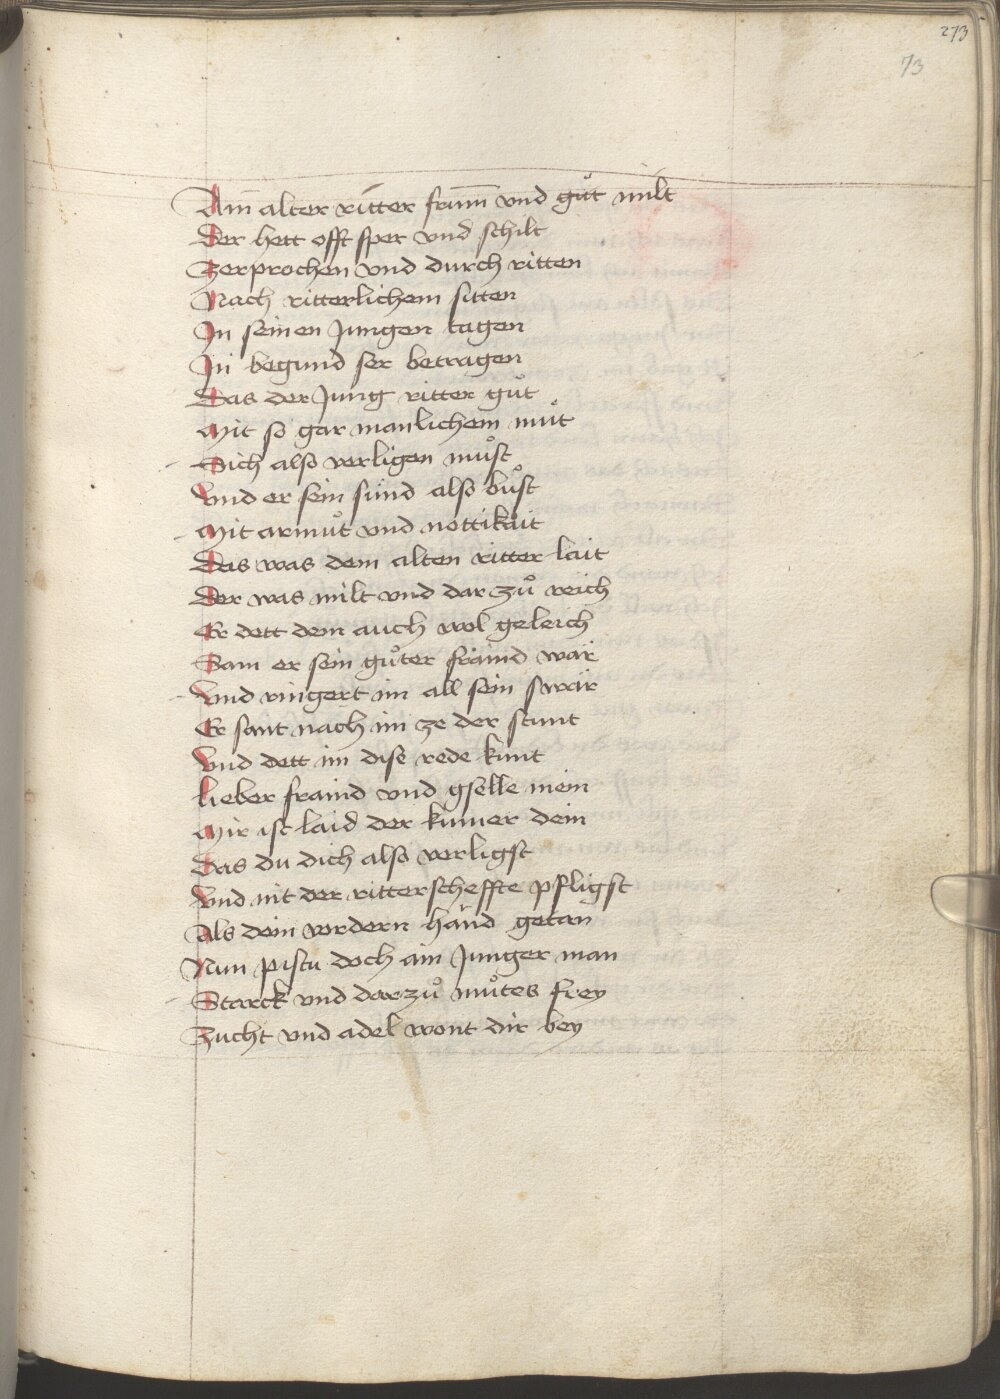 273
73
Ain alter ritter frum̄ vnd gůt milt
Der hett offt sper vnd schilt
Zerprochen vnd durch ritten
Nach ritterlichem sitten
In seinen Jungen tagen
In begund ser betragen
Das der Jung ritter gůt
Mit so gar manlichem můt
Sich also verligen můst
Vnd er sein sünd also bůst
Mit armůt vnd nottikäit
Das was dem alten ritter läit
Der was milt vnd dar zů reich
Er dett dem auch wol geleich
Sam er sein gůter fräind wär
Vnd ringert im all sein swär
Er sant nach im ze der stunt
Vnd dett im dise rede kunt
Lieber fraind vnd gselle mein
Mir ist laid der kumer dein
Das du dich also verligst
Vnd nit der ritterscheffte pfligst
Als dein vordern händ getan
Nun pistu doch ain Junger man
Starck vnd darzů můtes frey
Zucht vnd adel wont dir bey